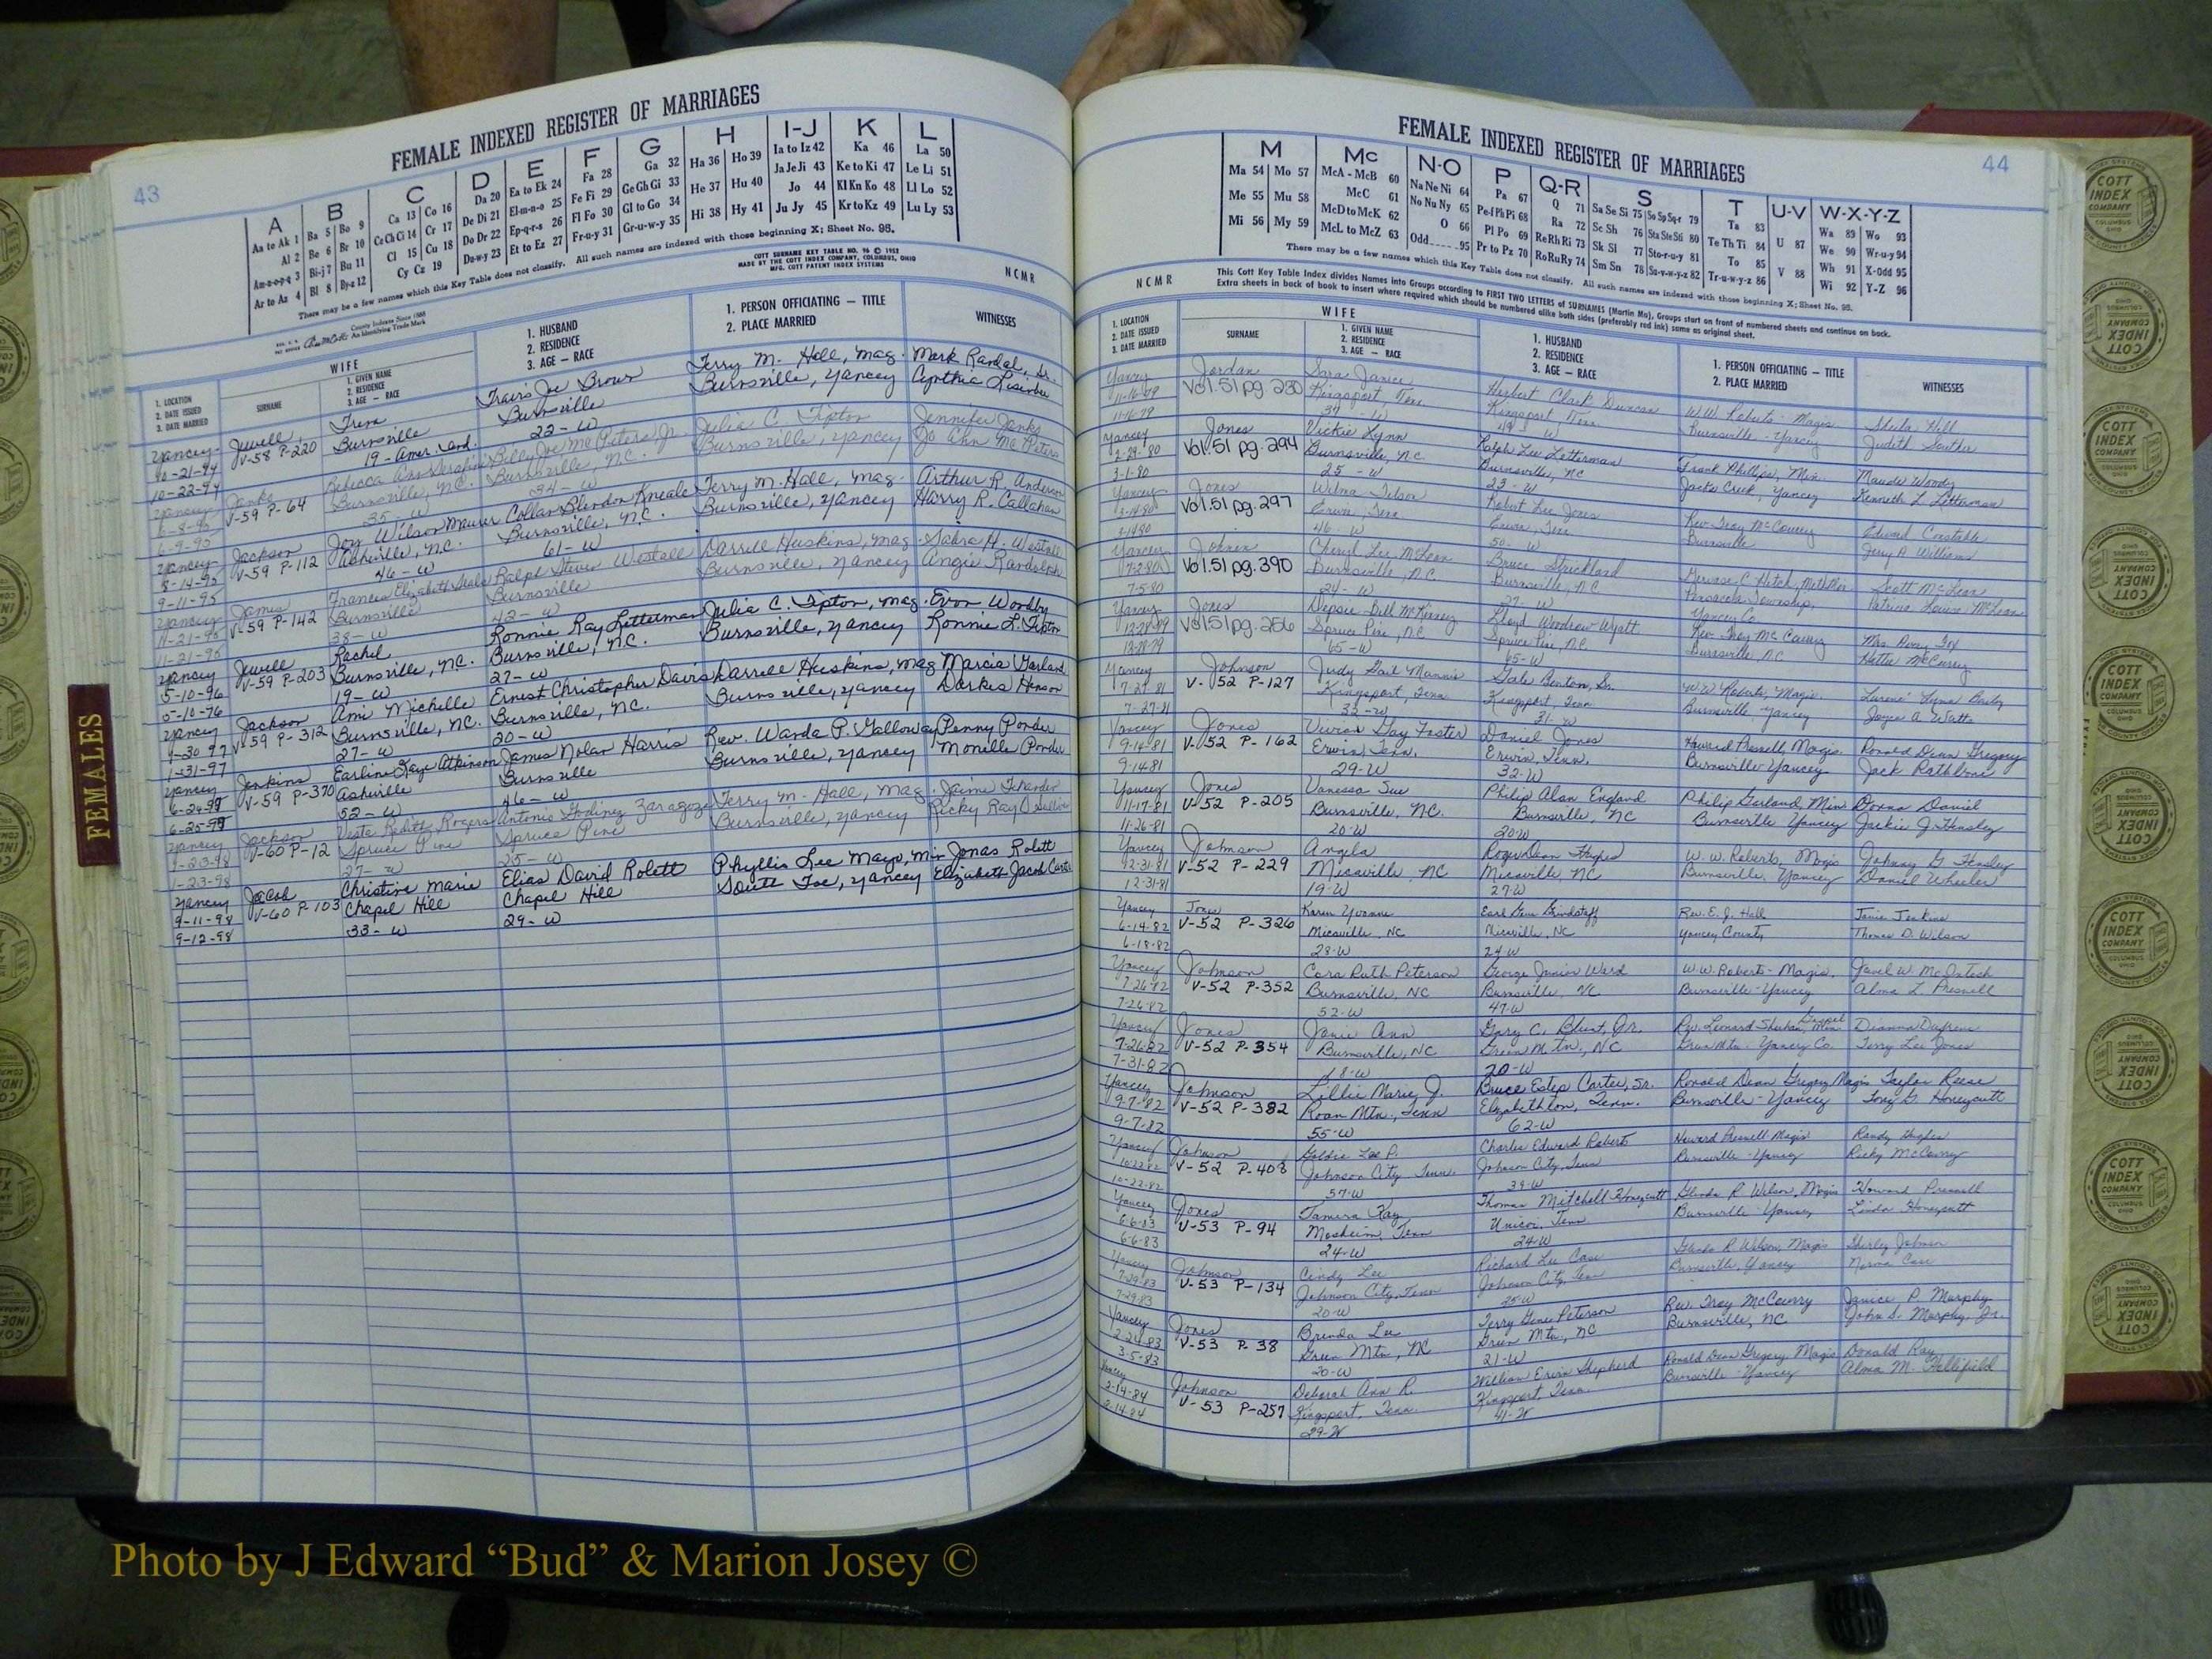 43
FEMALE INDEXED REGISTER OF MARRIAGES
A B C D E F G H I-J K L
Aa to Ak 1 Ba 5 Bo 9 Ca 13 Co 16 Da 20 Ea to Ek 24 Fa 28 Ga 32 Ha 36 Ho 39 Ia to Iz 42 Ka 46 La 50
Al 2 Be 6 Br 10 Ce Ch Ci 14 Cr 17 De Di 21 El-m-n-o 25 Fe Fi 29 Ge Gh Gi 33 He 37 Hu 40 Ja Je Ji 43 Ke to Ki 47 Le Li 51
Am-n-o-p-q 3 Bi-j 7 Bu 11 Cl 15 Cu 18 Do Dr 22 Ep-q-r-s 26 Fl Fo 30 Gl to Go 34 Hi 38 Hy 41 Jo 44 Kl Kn Ko 48 Ll Lo 52
Ar to Az 4 Bl 8 By-z 12 Cy Cz 19 Du-w-y 23 Et to Ez 27 Fr-u-y 31 Gr-u-w-y 35 Ju Jy 45 Kr to Kz 49 Lu Ly 53
There may be a few names which this Key Table does not classify. All such names are indexed with those beginning X; Sheet No. 95.
County Indexes Since 1888
An Identifying Trade Mark
COTT SURNAME KEY TABLE NO. 96 © 1952
MADE BY THE COTT INDEX COMPANY, COLUMBUS, OHIO
MFG. COTT PATENT INDEX SYSTEMS
N C M R
1. LOCATION
2. DATE ISSUED
3. DATE MARRIED
WIFE
SURNAME
1. GIVEN NAME
2. RESIDENCE
3. AGE — RACE
1. HUSBAND
2. RESIDENCE
3. AGE — RACE
1. PERSON OFFICIATING — TITLE
2. PLACE MARRIED
WITNESSES
Yancey Jewell, Trena Travis Joe Brown Terry M. Hall, Mag. Mark Randal, Sr.
10-21-94 V-58 P-220 Burnsville Burnsville Burnsville, Yancey Cynthia
10-22-94 19- Amer. Ind. 22-W
Yancey Janks Rebecca Ann Billy Joe McPeters Jr. Julia C. Tipton Jennifer Janks
6-8-95 V-59 P-64 Burnsville, N.C. Burnsville, N.C. Burnsville, Yancey Jo Ann McPeters
6-9-95 35-W 34-W
Yancey Jackson Joy Wilson Maurer Collar Blendon Kneale Terry M. Hall, Mag. Arthur R. Anderson
8-14-95 V-59 P-112 Asheville, N.C. Burnsville, N.C. Burnsville, Yancey Harry R. Callahan
9-11-95 46-W 61-W
Yancey James Frances Elizabeth Ralph Steven Westall Darrell Huskins, Mag. Sabra H. Westall
11-21-95 V-59 P-142 Burnsville Burnsville Burnsville, Yancey Angie Randolph
11-21-95 38-W 42-W
Yancey Jewell Rachel Ronnie Ray Letterman Julia C. Tipton, Mag. Evon Woodby
5-10-96 V-59 P-203 Burnsville, N.C. Burnsville, N.C. Burnsville, Yancey Ronnie L. Tipton
5-10-96 19-W 27-W
Yancey Jackson Ami Michelle Ernest Christopher Davis Darrell Huskins, Mag Marcia Garland
1-30-97 V-59 P-312 Burnsville, NC. Burnsville, NC. Burnsville, Yancey Darkis Henson
1-31-97 27-W 20-W
Yancey Jenkins Earline Kaye Atkinson James Nolan Harris Rev. Wanda P. Galloway Penny Ponder
6-24-97 V-59 P-370 Asheville Burnsville Burnsville, Yancey Monille Ponder
6-25-97 52-W 46-W
Yancey Jackson Vesta Rogers Antonio Godinez Zaragoza Terry M. Hall, Mag. Jaime
1-23-98 V-60 P-12 Spruce Pine Spruce Pine Burnsville, Yancey Ricky Ray
1-23-98 27-W 25-W
Yancey Jacob Christine Marie Elias David Rolett Phyllis Lee Mayo, Min Jonas Rolett
9-11-98 V-60 P-103 Chapel Hill Chapel Hill South Toe, Yancey Elizabeth Jacob Carter
9-12-98 33-W 29-W
FEMALES
44
FEMALE INDEXED REGISTER OF MARRIAGES
M Mc N-O P Q-R S T U-V W-X-Y-Z
Ma 54 Mo 57 McA - McB 60 Na Ne Ni 64 Pa 67 Q 71 Sa Se Si 75 So Sp Sq-r 79 Ta 83 U 87 Wa 89 Wo 93
Me 55 Mu 58 McC 61 No Nu Ny 65 Pe-f Ph Pi 68 Ra 72 Sc Sh 76 Sta Ste Sti 80 Te Th Ti 84 V 88 We 90 Wr-u-y 94
Mi 56 My 59 McD to McK 62 O 66 Pl Po 69 Re Rh Ri 73 Sk Sl 77 Sto-r-u-y 81 To 85 Wh 91 X-Odd 95
McL to McZ 63 Odd 95 Pr to Pz 70 Ro Ru Ry 74 Sm Sn 78 Su-v-w-y-z 82 Tr-u-w-y-z 86 Wi 92 Y-Z 96
There may be a few names which this Key Table does not classify. All such names are indexed with those beginning X; Sheet No. 95.
N C M R
This Cott Key Table Index divides Names into Groups according to FIRST TWO LETTERS of SURNAMES (Martin Ma), Groups start on front of numbered sheets and continue on back.
Extra sheets in back of book to insert where required which should be numbered alike both sides (preferably red ink) same as original sheet.
1. LOCATION
2. DATE ISSUED
3. DATE MARRIED
WIFE
SURNAME
1. GIVEN NAME
2. RESIDENCE
3. AGE — RACE
1. HUSBAND
2. RESIDENCE
3. AGE — RACE
1. PERSON OFFICIATING — TITLE
2. PLACE MARRIED
WITNESSES
Yancey Jordan Sara Janice Herbert Clark Duncan W.W. Roberts - Magis. Sheila Hill
11-16-79 Vol. 51 pg. 230 Kingsport, Tenn Kingsport, Tenn Burnsville - Yancey Judith
11-16-79 37-W 49-W
Yancey Jones Vickie Lynn Ralph Lee Letterman Frank Phillips, Min. Maude Woody
2-29-80 Vol. 51 pg. 294 Burnsville, NC Burnsville, NC Jacks Creek, Yancey Kenneth L. Letterman
3-1-80 25-W 23-W
Yancey Jones Wilma Robert Lee Jones Rev. Troy McCurry Edward Constable
3-14-80 Vol. 51 pg. 297 Erwin, Tenn Erwin, Tenn Burnsville Jerry A. Williams
3-14-80 46-W 50-W
Yancey Cheryl Lee McLean Bruce Strickland Hatch, Scott McLean
7-2-80 Vol. 51 pg. 390 Burnsville, NC Burnsville, NC Township, Patricia Louise McLean
7-5-80 24-W 27-W Yancey Co.
Yancey Jones Depsie Dell McKinney Lloyd Woodrow Wyatt Rev. Troy McCurry Mrs. Avery
12-28-79 Vol. 51 pg. 256 Spruce Pine, NC Spruce Pine, NC Burnsville, NC Hettie McCurry
12-28-79 65-W 65-W
Yancey Johnson Judy Gail Mannis Gale Benton, Sr. W.W. Roberts, Magis. Bailey
7-27-81 V-52 P-127 Kingsport, Tenn Kingsport, Tenn Burnsville, Yancey Joyce A. Watts
7-27-81 32-W 31-W
Yancey Jones Vivian Gay Foster Daniel Jones Howard Presnell, Magis. Ronald Dean Gregory
9-14-81 V-52 P-162 Erwin, Tenn. Erwin, Tenn. Burnsville-Yancey Jack Rathbone
9-14-81 29-W 32-W
Yancey Jones Vanessa Sue Philip Alan England Philip Garland, Min Donna Daniel
11-17-81 V-52 P-205 Burnsville, N.C. Burnsville, NC Burnsville Yancey Jackie J. Hensley
11-26-81 20-W 20W
Yancey Johnson Angela Roger Dean Hughes W.W. Roberts, Magis Johnny G Hensley
12-31-81 V-52 P-229 Micaville, NC Micaville, NC Burnsville, Yancey Daniel Wheeler
12-31-81 19-W 27-W
Yancey Jones Karen Yvonne Earl Gene Grindstaff Rev. E. J. Hall Janie Jenkins
6-14-82 V-52 P-326 Micaville, NC Micaville, NC Yancey County Thomas D. Wilson
6-18-82 28-W 24W
Yancey Johnson Cora Ruth Peterson George Junior Ward W.W. Roberts - Magis. Javel W. McIntosh
7-26-82 V-52 P-352 Burnsville, NC Burnsville, NC Burnsville-Yancey Alma L. Presnell
7-26-82 52-W 47-W
Yancey Jones Janie Ann Gary C. Blunt, Jr. Rev. Leonard Sheehan, Gospel Min. Dianna Dufrene
7-26-82 V-52 P-354 Burnsville, NC Green Mtn., NC Green Mtn. Yancey Co. Terry Lee Jones
7-31-82 18-W 20-W
Yancey Johnson Lillie Marie J. Bruce Estep Carter, Sr. Ronald Dean Gregory Magis Taylor Reese
9-7-82 V-52 P-382 Roan Mtn., Tenn Elizabethton, Tenn. Burnsville-Yancey Tony G. Honeycutt
9-7-82 55-W 62-W
Yancey Johnson Goldie Lee P. Charles Edward Roberts Howard Presnell Magis Randy Hughes
10-22-82 V-52 P-408 Johnson City, Tenn. Johnson City, Tenn Burnsville-Yancey Ricky McCurry
10-22-82 57-W 39-W
Yancey Jones Tamera Kay Thomas Mitchell Honeycutt Glenda R. Wilson, Magis Howard Presnell
6-6-83 V-53 P-94 Mosheim, Tenn Unicoi, Tenn Burnsville-Yancey Linda Honeycutt
6-6-83 24-W 24-W
Yancey Johnson Cindy Lee Richard Lee Case Glenda R. Wilson, Magis Shirley Johnson
7-29-83 V-53 P-134 Johnson City, Tenn Johnson City, Tenn Burnsville, Yancey Norma Case
7-29-83 20-W 25-W
Yancey Jones Brenda Lee Terry Gene Peterson Rev. Troy McCurry Janice P. Murphy
2-24-83 V-53 P-38 Green Mtn, NC Green Mtn., NC Burnsville, NC John S. Murphy, Jr.
3-5-83 20-W 21-W
Yancey Johnson Deborah Ann R. William Ervin Shepherd Ronald Dean Gregory Magis Donald Ray
2-14-84 V-53 P-257 Kingsport, Tenn. Kingsport, Tenn. Burnsville-Yancey Alma M. Hollifield
2-14-84 29-W 41-W
COTT INDEX COMPANY COLUMBUS OHIO
Photo by J Edward “Bud” & Marion Josey ©